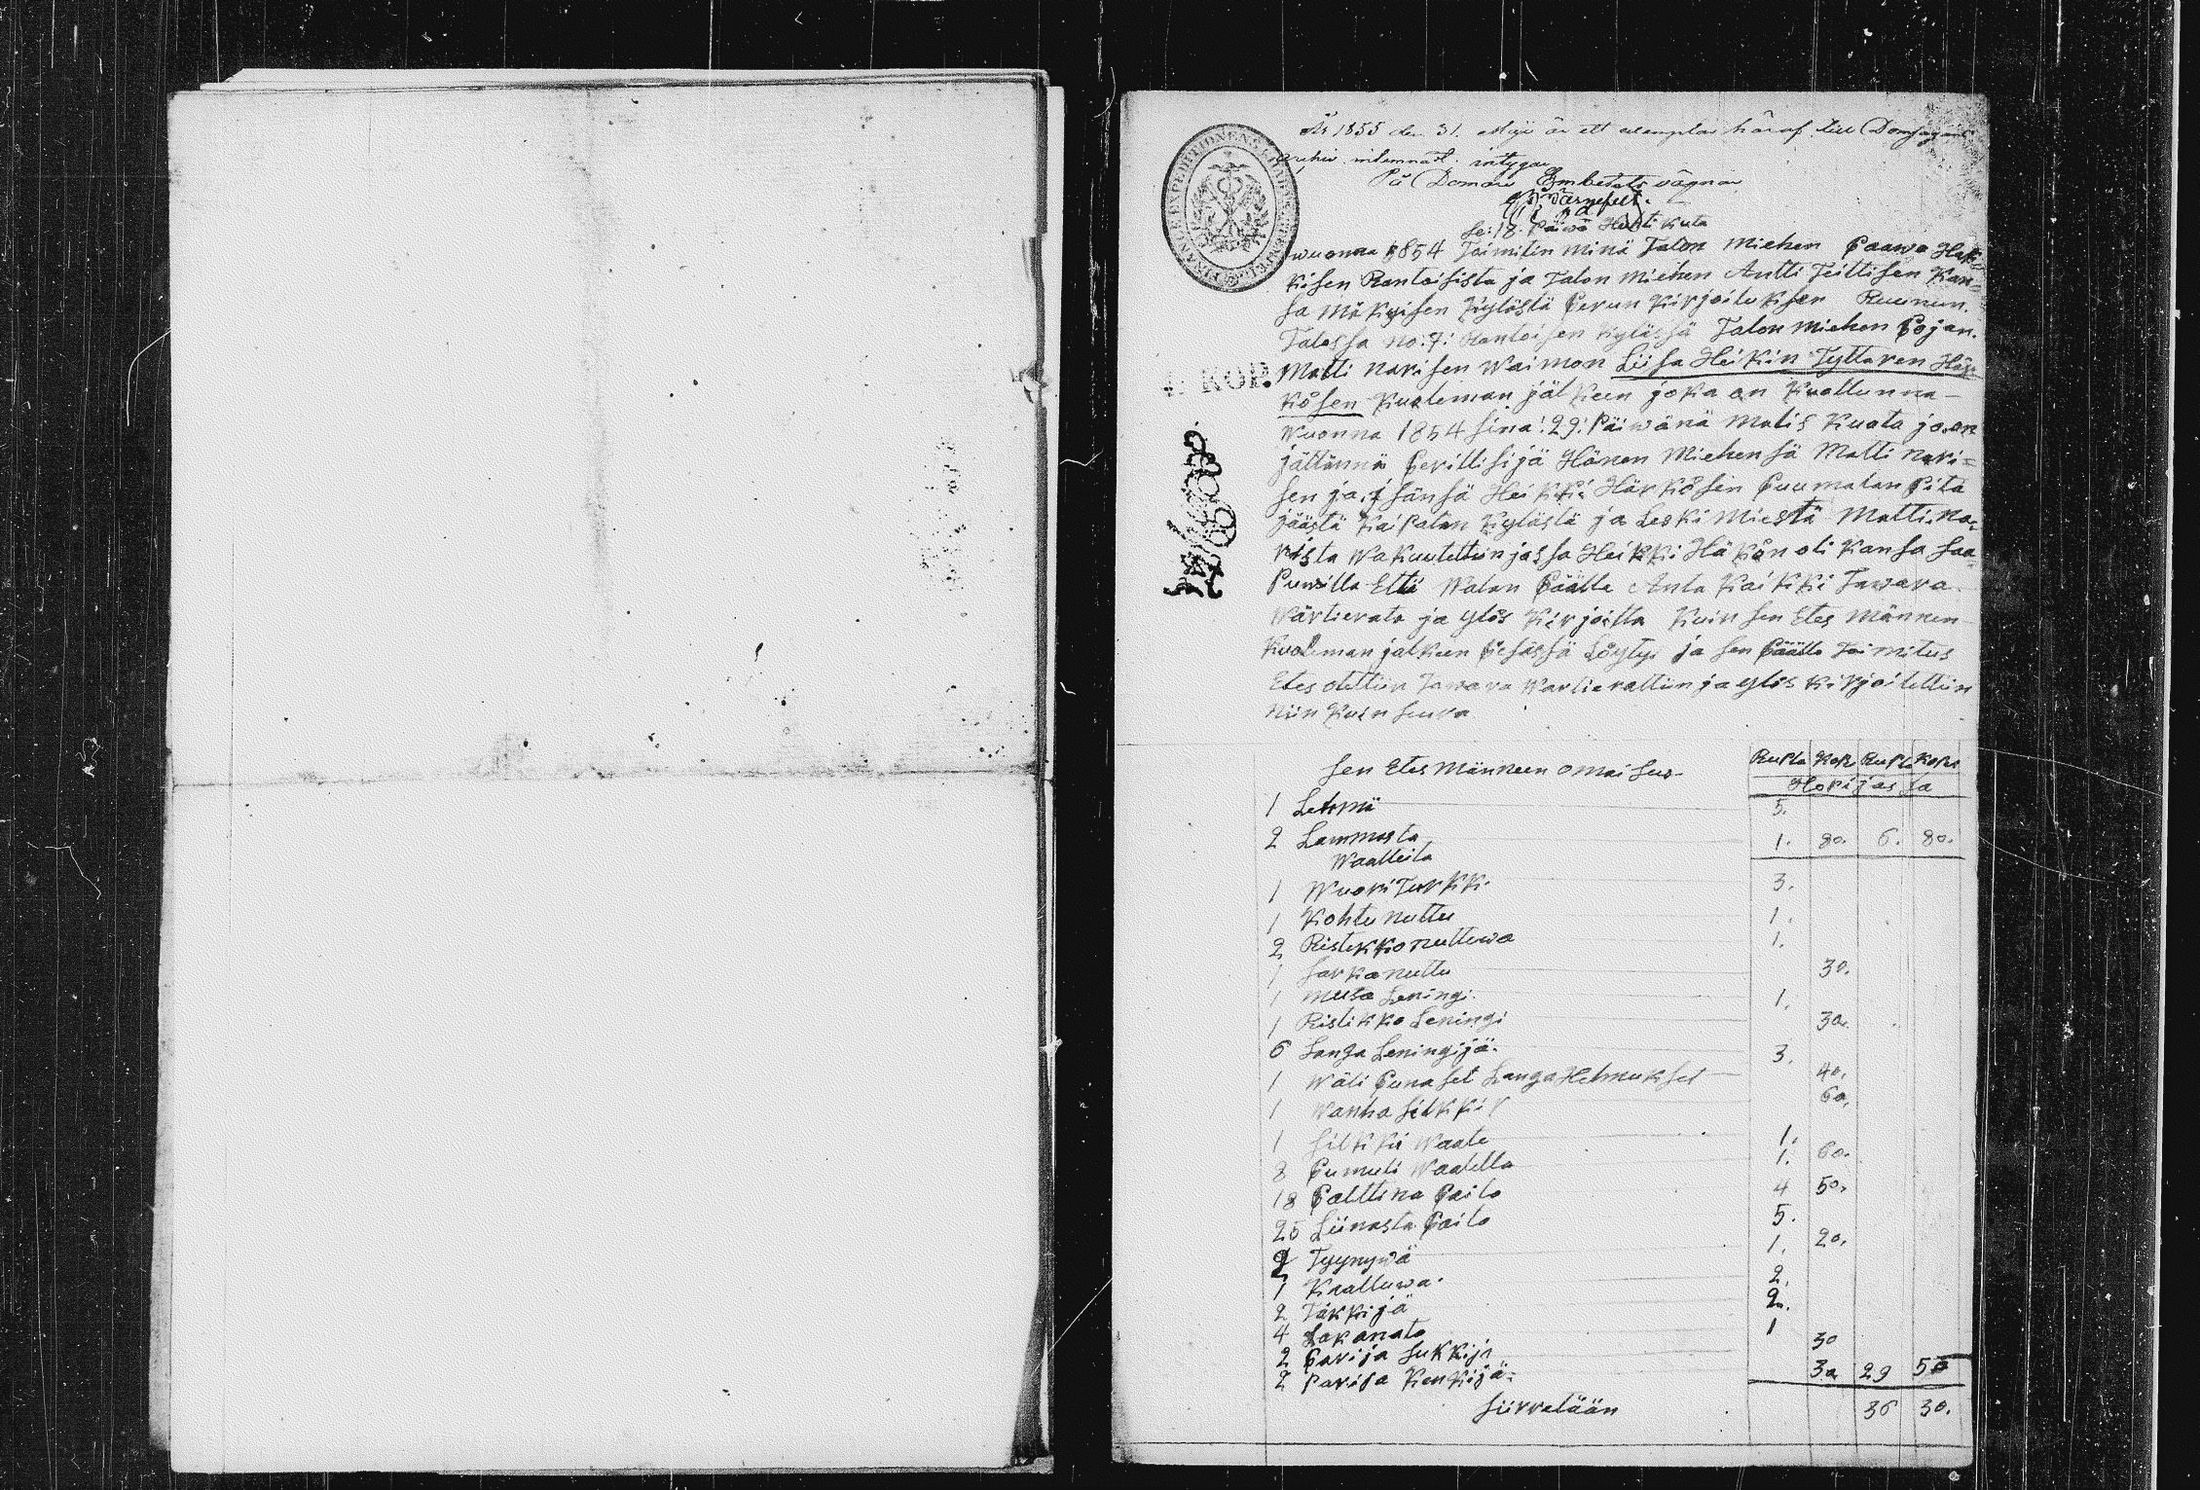 År 1855 den 31. Maji är ett exemplar häraf till Domsagans
archiv inlemnadt. intygar
På Domare Embetets vägnar
Se: 18: Päivä Huhti kuta
wuonna 1854 Toimitin minä Talon miehen Paawo Hak=
kisen Rantoisista ja Talon miehen Antti Teittisen Kan=
sa Mäkyisen Kylästä Perun Kirjoituksen Ruunun.
Talossa no: 7: Kylässä Talon miehen Pojan.
4 KOP.
Matti Narisen Waimon Liisa Heikin Tyttären Här
kösen Kuoleman jälkeen joka on Kuollunna
Wuonna 1854 sina: 29: Päiwänä Malis Kuuta ja on
jättännä Perillisijä Hänen Miehensä Matti Nari=
sen ja isänsä Heikki Härkösin Puumalan Pitä
jäästä Kylästä ja Leski Miestä Matti Na=
rista Wakuutettiin jassa Heikki Häkön oli Kansa Saa
Puwilla Että Walan Päälle Anta Kaikki Tawara
Wärtierata ja ylös Kirjoitta Kuin sen Etes Männen
Kuoleman jalkeen Pesässä Löyty ja sen Päälle Toimitus
Etes otettiin Tawara Wartierattiin ja ylös Kirjoitettiin
niin Kuin seura
Sen Etes Männeen omaisus Rupla Kop Rupla Kope
Hopijassa
1 Lehmä 5.
2 Lammasta 1. 80. 6. 80.
Waatteita
1 WuoriTurkki 3.
1 Kohtu nuttu 1.
2 Ristikko nuttuwa 1.
1 Sarka nuttu 30.
1 musta Leningi 1.
1 Ristikko Leningi 30.
6 Langa Leningijä. 3.
1 Wäli Punaset Langa Helmukset 40.
1 Wanha Silkki 60.
1 Silkki Waate 1.
8 Pumuli Waatetta 1. 60.
18 Palttina Paita 4 50.
25 Liinasta Paita 5.
2 Tyynywä 1. 20.
1 Raattuwa. 2.
2 Täkkijä 2.
4 Lakanata 1
2 Parija Sukkija 30
2 Parija Kenkijä. 30 29 50
Siirretään 36 30.